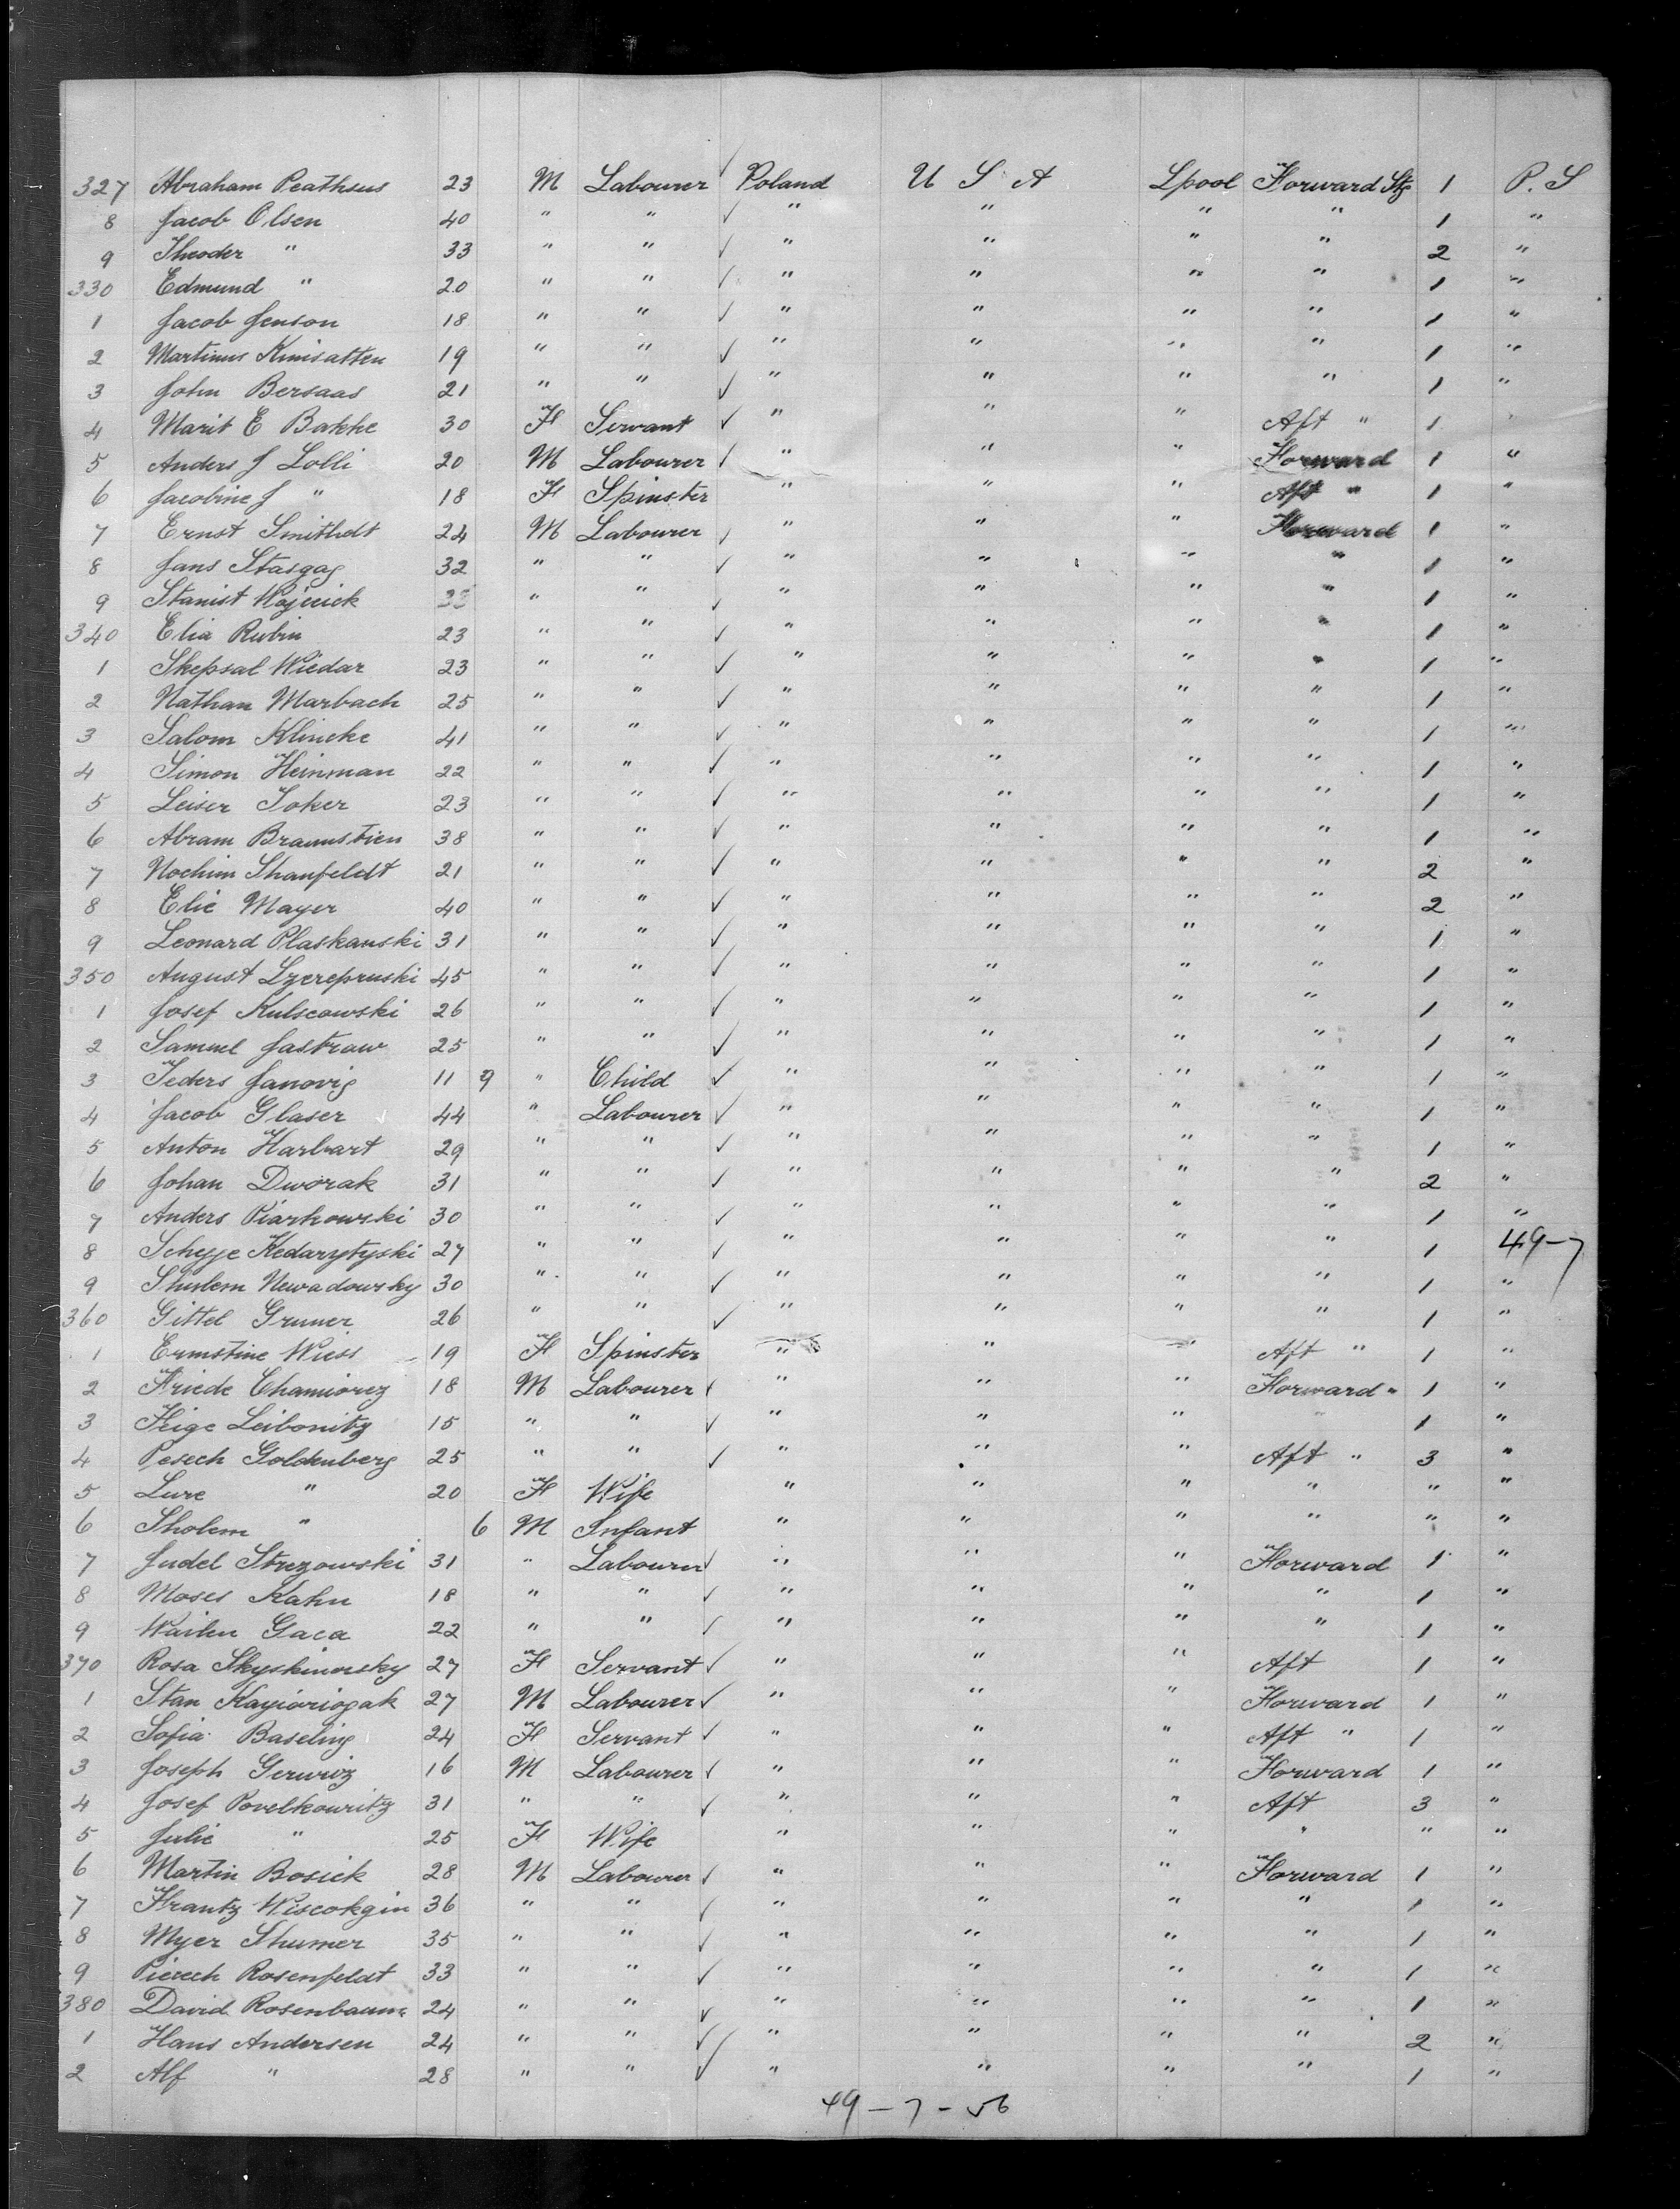 327 Abraham Peathsus 23 M Labourer ✓ Poland U S A Lpool Forward Stg 1 P. S
8 Jacob Olsen 40 " " ✓ " " " " 1 "
9 Theoder " 33 " " ✓ " " " " 2 "
330 Edmund " 20 " " ✓ " " " " 1 "
1 Jacob Jenson 18 " " ✓ " " " " 1 "
2 Martinus 19 " " ✓ " " " " 1 "
3 John Bersaas 21 " " ✓ " " " " 1 "
4 Marit E Bakke 30 F Servant ✓ " " " Aft " 1 "
5 Anders J Lolli 20 M Labourer ✓ " " " Forward 1 "
6 Jacobine J " 18 F Spinster " " " Aft " 1 "
7 Ernst Smitholt 24 M Labourer ✓ " " " Forward 1 "
8 Jans Stasgag 32 " " ✓ " " " " 1 "
9 Stanist Wojcick " " ✓ " " " " 1 "
340 Elia Rubin 23 " " ✓ " " " " 1 "
1 Skepsal Wiedar 23 " " ✓ " " " " 1 "
2 Nathan Marbach 25 " " ✓ " " " " 1 "
3 Salom Klincke 41 " " ✓ " " " " 1 "
4 Simon Heinman 22 " " ✓ " " " " 1 "
5 Leiser Joker 23 " " ✓ " " " " 1 "
6 Abram Braunstien 38 " " ✓ " " " " 1 "
7 Nochim Shanfeldt 21 " " ✓ " " " " 2 "
8 Elie Mayer 40 " " ✓ " " " " 2 "
9 Leonard Plaskanski 31 " " ✓ " " " " 1 "
350 August Lzerepruski 45 " " ✓ " " " " 1 "
1 Josef Kulscowski 26 " " ✓ " " " " 1 "
2 Samuel Jastraw 25 " " ✓ " " " " 1 "
3 Jeders Janovig 11 9 " Child ✓ " " " " 1 "
4 Jacob Glaser 44 " Labourer ✓ " " " " 1 "
5 Anton Harbart 29 " " ✓ " " " " 1 "
6 Johan Dworak 31 " " ✓ " " " " 2 "
7 Anders Piarkowski 30 " " ✓ " " " " 1 "
8 Schyje Kedarytyski 27 " " ✓ " " " " 1 49-7
9 Shulem Newadowsky 30 " " ✓ " " " " 1 "
360 Gittel Gruner 26 " " ✓ " " " " 1 "
1 Ernstine Wiess 19 F Spinster " " " Aft " 1 "
2 Friede Chamiorez 18 M Labourer ✓ " " " Forward " 1 "
3 Feige Leibonitz 15 " " ✓ " " " " 1 "
4 Pesech Goldenberg 25 " " ✓ " " " Aft " 3 "
5 Lure " 20 F Wife " " " " " "
6 Sholem " 6 M Infant " " " " " "
7 Judel Strezowski 31 " Labourer ✓ " " " Forward 1 "
8 Moses Kahn 18 " " ✓ " " " " 1 "
9 Gaca 22 " " ✓ " " " " 1 "
370 Rosa Skyskinorsky 27 F Servant ✓ " " " Aft 1 "
1 Stan Kayioriogak 27 M Labourer ✓ " " " Forward 1 "
2 Sofia Baseling 24 F Servant ✓ " " " Aft " 1 "
3 Joseph Gerwirz 16 M Labourer ✓ " " " Forward 1 "
4 Josef Povelkowritz 31 " " ✓ " " " Aft 3 "
5 Julie " 25 F Wife " " " " " "
6 Martin Bosick 28 M Labourer ✓ " " " Forward 1 "
7 Frantz Wiscokgin 36 " " ✓ " " " " 1 "
8 Myer Shumer 35 " " ✓ " " " " 1 "
9 Rosenfeldt 33 " " ✓ " " " " 1 "
380 David Rosenbaum 24 " " ✓ " " " " 1 "
1 Hans Andersen 24 " " ✓ " " " " 2 "
2 Alf " 28 " " ✓ " " " " 1 "
49-7-56